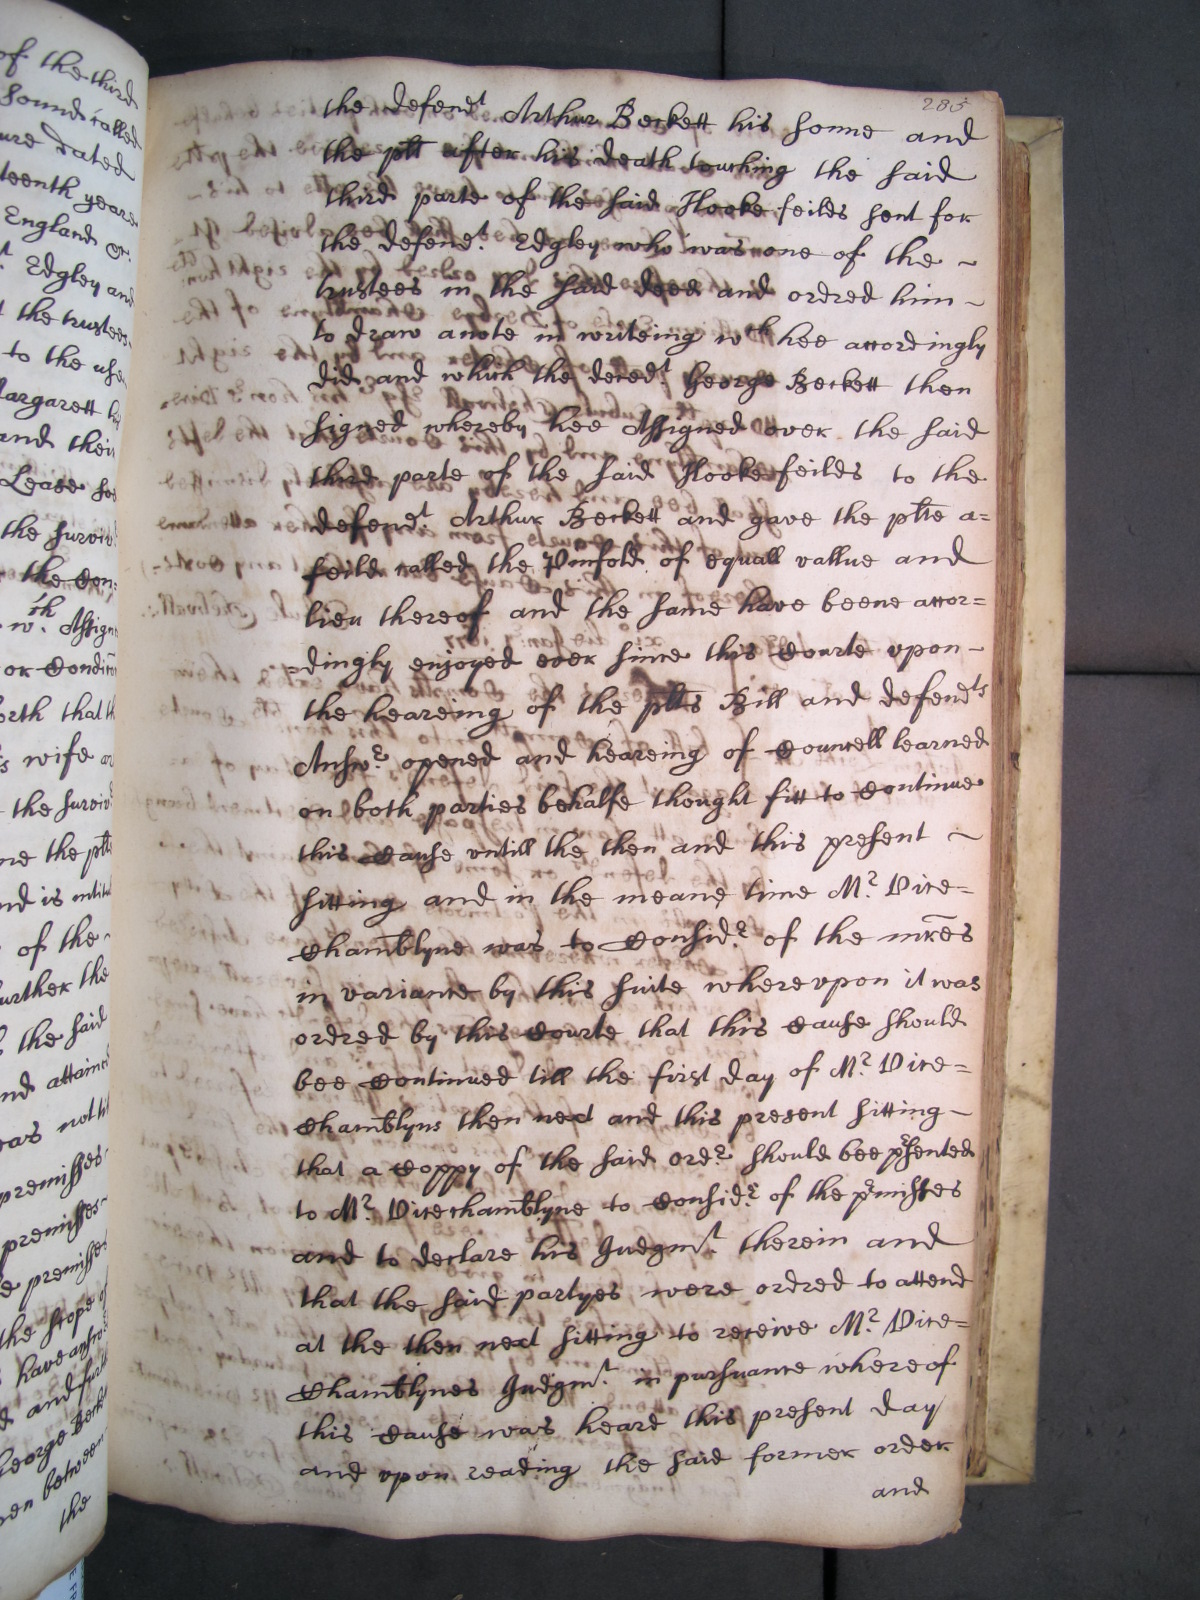 of the third
Sound called
ure dated
teenth yeare
England &c.
t. Edgley and
t the trustees
to the use
Margarett his
and their
Lease
the surviv
the Con=
wch. Assign
or Condicon
orth that th
s wife
the surviv
ne the plt
nd is intitul
of the
urther the
the said
nd attained
was not
premisses
premisses
e premisses
the scope of
have answ
d and fur
George Beck
en betweene
the
285
the defendt Arthur Beckett his sonne and
the plt after his death touching the said
third parte of the said Hooke feilds sent for
the defendt. Edgley who was one of the ~
trustees in the said deed and ordred him ~
to draw anote in writeing wch hee accordingly
did and which the decedt. George Beckett then
signed whereby hee Assigned over the said
third parte of the said Hooke feilds to the
defendt. Arthur Beckett and gave the plte a=
feild called the Pinfold of equall vallue and
lieu thereof and the same have beene accor=
=dingly enjoyed ever since this Courte vpon ~
the heareing of the plts Bill and defendts
Answr. opened and heareing of Councell learned
on both parties behalfe thought fitt to Continue
this Cause vntill the then and this present ~
sitting and in the meane time Mr. Vice=
Chamblyne was to Considr. of the mres
in variance by this suite wherevpon it was
ordred by this Courte that this Cause should
bee Continued till the first day of Mr. Vice=
Chamblyns then next and this present sitting ~
that a Coppy of the said ordr. should bee prsented
to Mr. Vicechamblyne to Considr. of the prmisses
and to declare his Judgmt. therein and
that the said partyes were ordred to attend
at the then next sitting to receive Mr. Vice=
Chamblynes Judgmt. in pursuance whereof
this Cause was heard this present day
and vpon reading the said former order
and